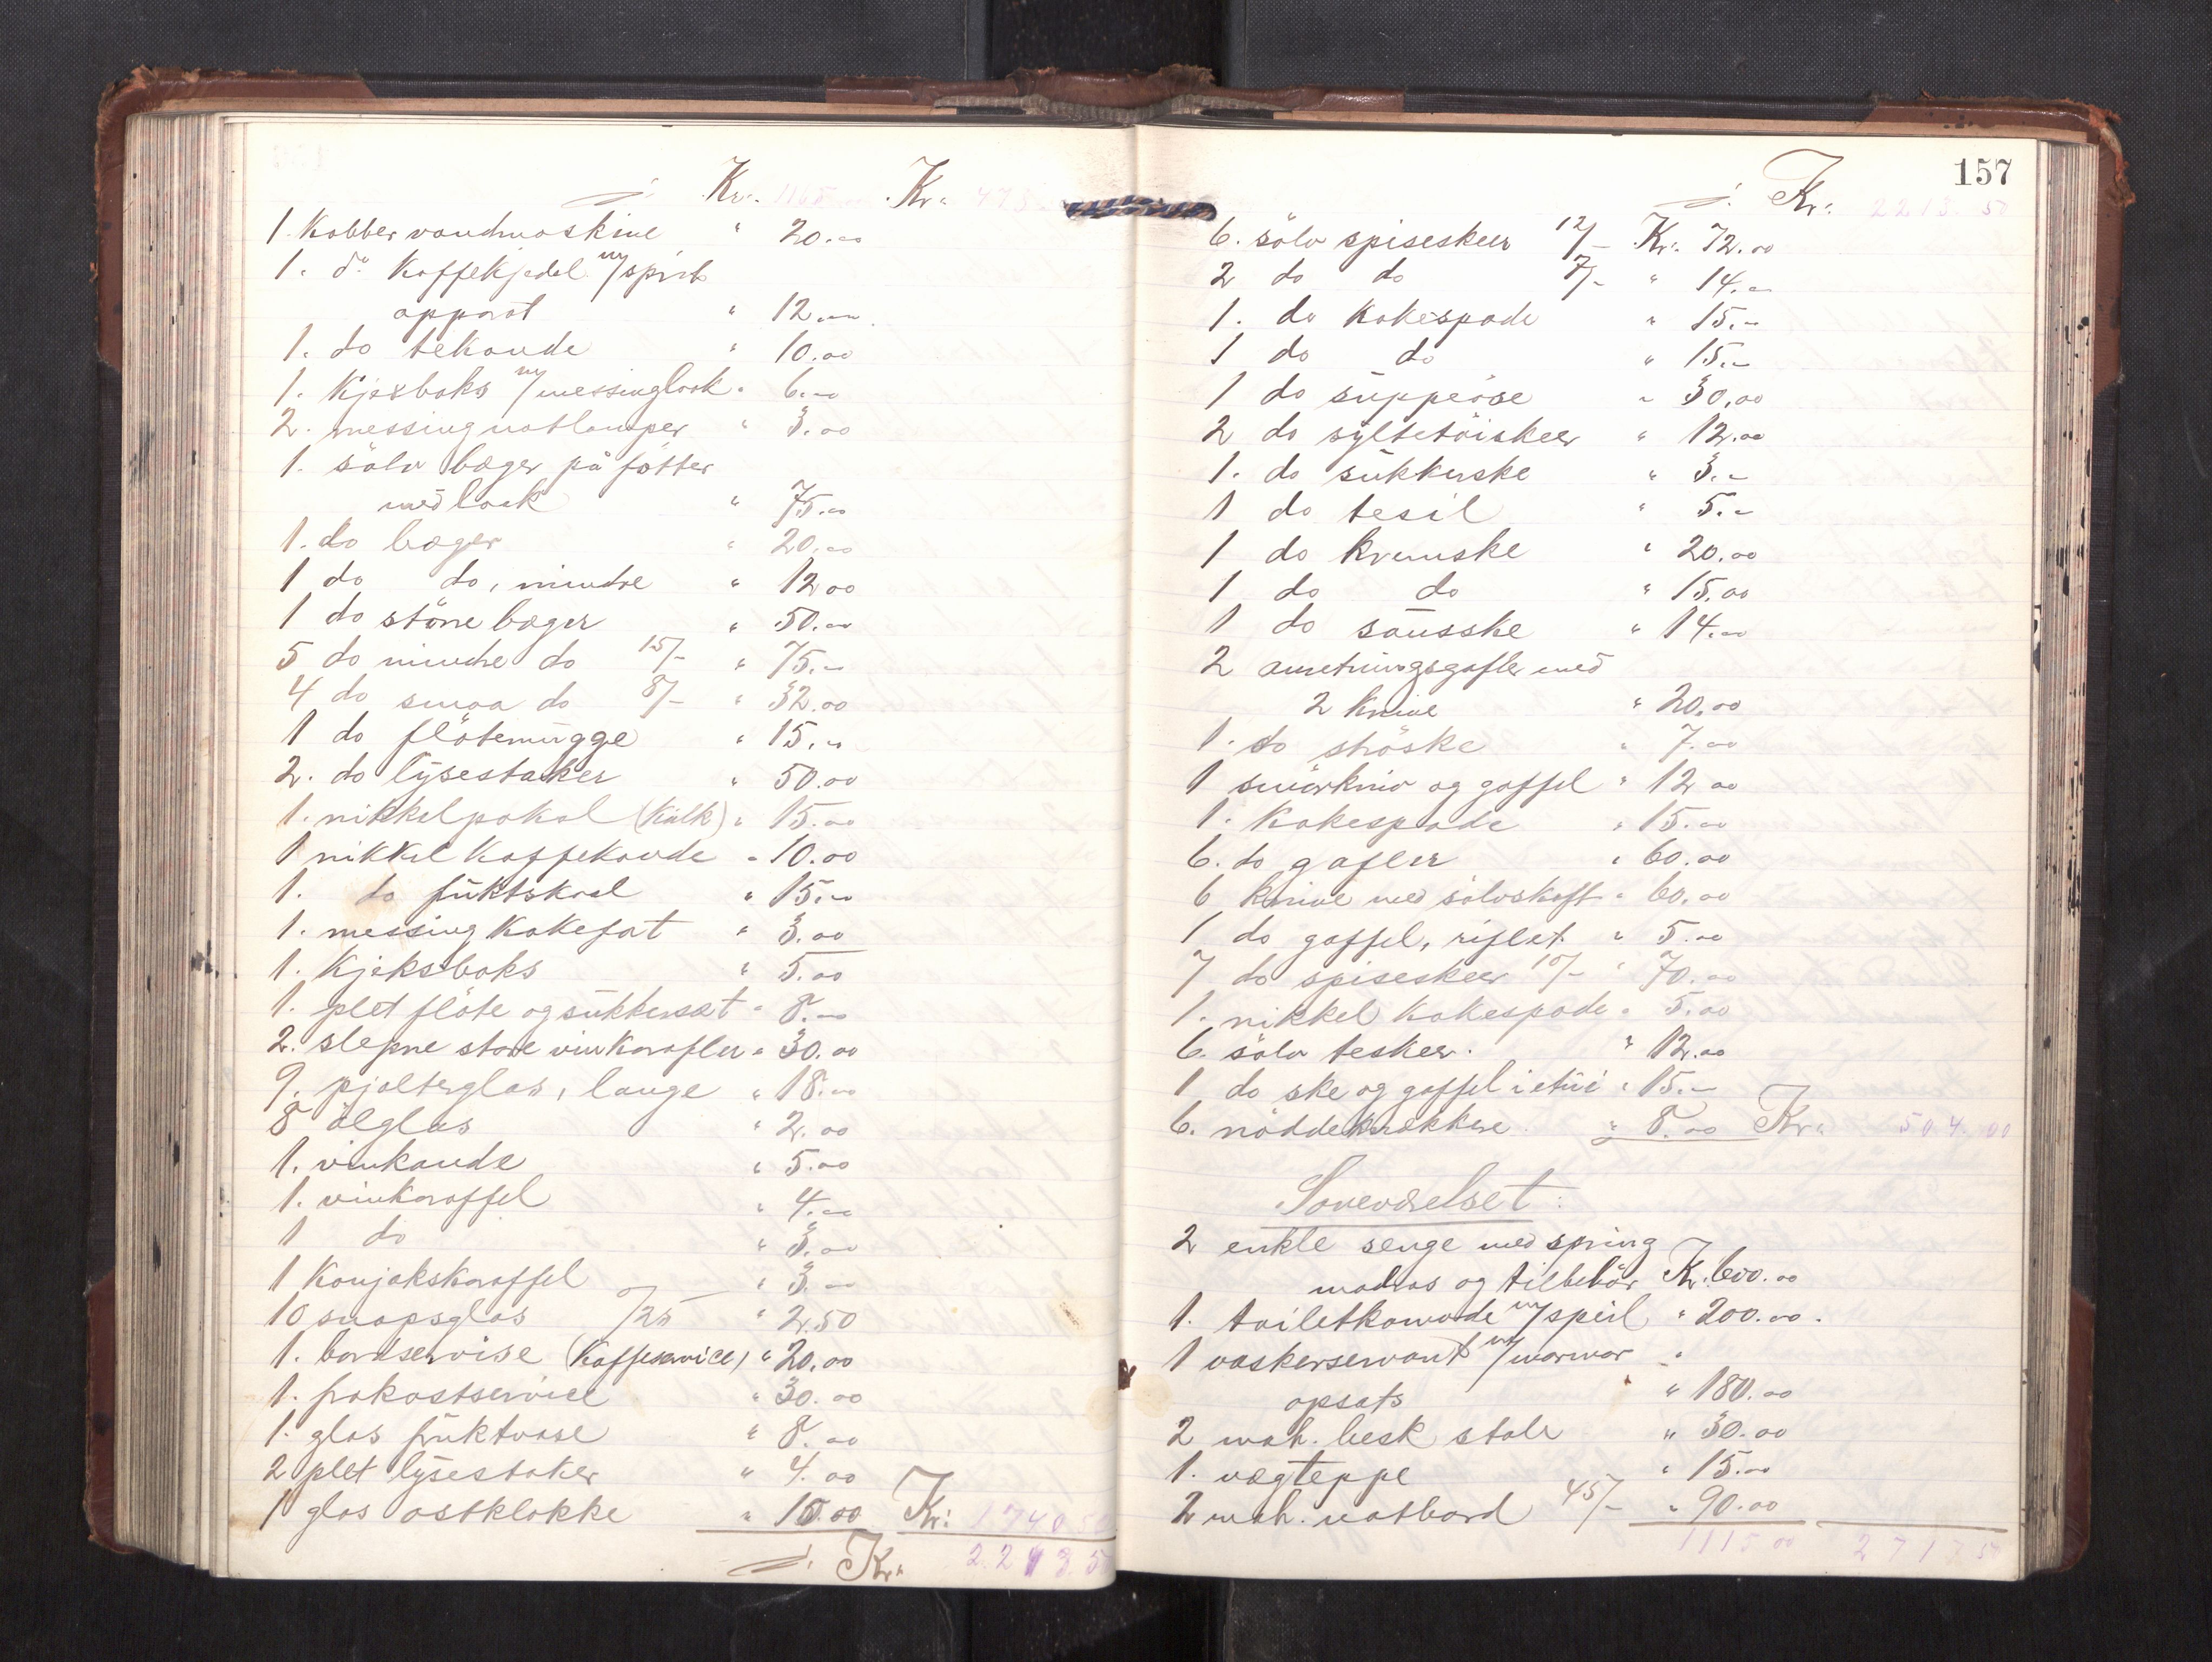 Kr. 1165 Kr. 473
1. Kobber vandmaskine " 20.00
1. do Kaffekjedel m/spirit
apparat " 12.00
1. do tekande " 10.00
1. Kjexboks m/messinglaak " 6.00
2. messing natlamper " 3.00
1. sölv bæger på fötter
med laak " 75.00
1. do bæger " 20.00
1 do do, mindre " 12 00
1 do större bæger " 50.00
5 do mindre do 15/- " 75.00
4 do smaa do 8/- " 32.00
1 do flötemugge " 15.00
2. do lysestaker " 50.00
1. nikkelpokal (Kalk) " 15.00
1 nikkel Kaffekande " 10.00
1. do fruktskaal " 15.00
1. messing Kakefat " 3.00
1. Kjeksboks " 5.00
1. plet flöte og sukkersæt " 8.00
2. slepne store vinkarafler " 30.00
9. pjolterglas, lange " 18.00
8 ölglas " 2.00
1. vinkande " 5.00
1. vinkaraffel " 4.00
1 do " 3.00
1 Konjakskaraffel " 3.00
10 snapsglas /25 " 2.50
1. bordservise (Kaffeservice) " 20.00
1. frokostservice " 30.00
1. glas fruktvase " 8.00
2 plet lysestaker " 4.00
1 glas ostklokke " 10.00 Kr: 1740 50
Kr. 2213.50
157
Kr. 2213.50
6. sölv spiseskeer 12/- Kr. 72.00
2 do do 7/- " 14.00
1. do Kakespade " 15.00
1 do do " 15.00
1 do suppeöse " 30.00
2 do syltetöiskeer " 12.00
1. do sukkerske " 3.00
1 do tesil " 5.00
1 do kremske " 20.00
1 do do " 15.00
1 do sausske " 14.00
2 anretningsgafler med
2 knive " 20.00
1. do ströske " 7.00
1 smörkniv og gaffel " 12 00
1. Kakespade " 15.00
6. do gafler " 60.00
6 knive med sölvskaft " 60.00
1 do gaffel, riflet " 5.00
7 do spiseskeer 10/- " 70.00
1. nikkel Kakespade " 5.00
6. sölv teskeer. " 12.00
1 do ske og gaffel i etui " 15.00
6. nöddeknækkere " 8.00 Kr. 504.00
Soveværelset:
2 enkle senge med spring
madras og tilbehör Kr. 600.00
1. toiletkomode m/speil " 200.00.
1 vaskerservant m/marmor
opsats " 180.00
2 mah. besk stole " 30.00
1. vægteppe " 15.00
2 mah. natbord 45/- " 90.00
1115 00 2717 50